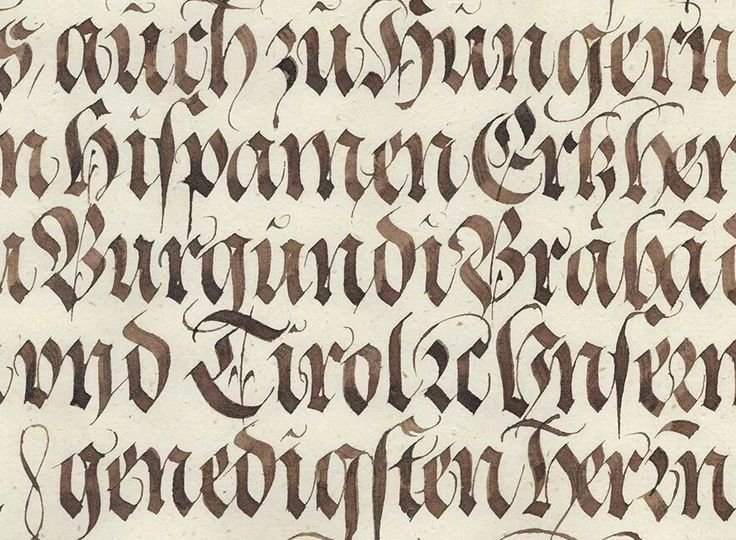 s, auch zu Hungern
n Hispanien Erkher
u Burgundi Brabā
vnd Tirol ꝛc Unsern
genedigsten Herrn